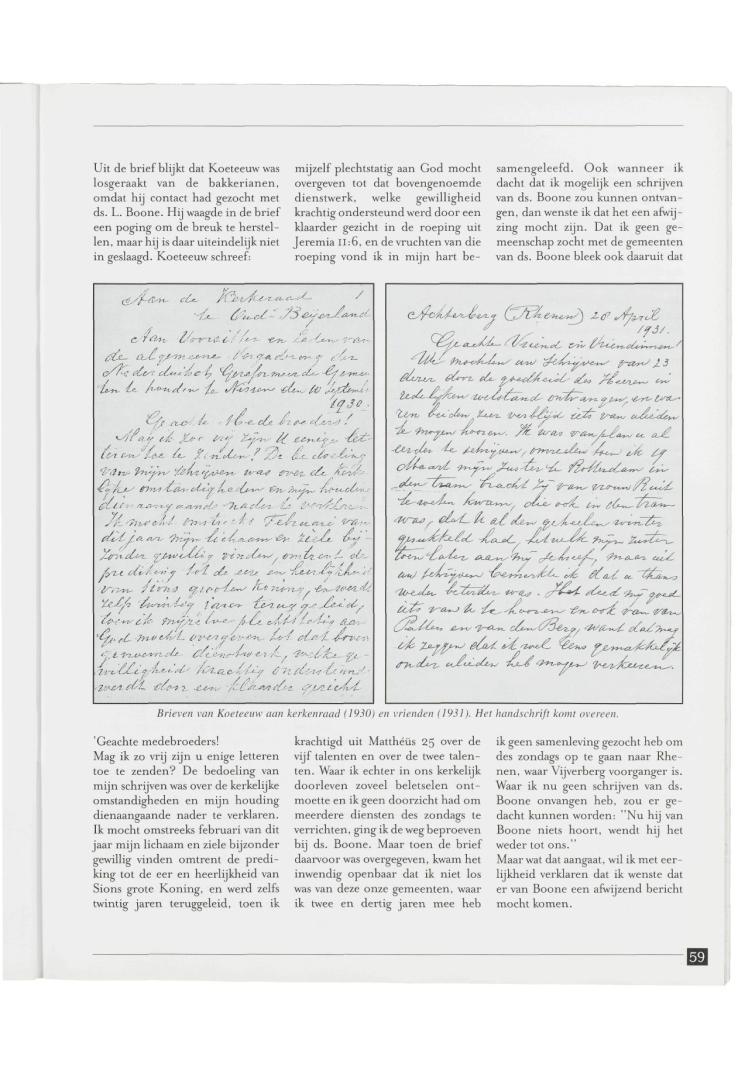 Uit de brief blijkt dat Koeteeuw was
losgeraakt van de bakkerianen,
omdat hij contact had gezocht met
ds. L. Boone. Hij waagde in de brief
een poging om de breuk te herstel-
len, maar hij is daar uiteindelijk niet
in geslaagd. Koeteeuw schreef:
mijzelf plechtstatig aan God mocht
overgeven tot dat bovengenoemde
dienstwerk, welke gewilligheid
krachtig ondersteund werd door een
klaarder gezicht in de roeping uit
Jeremia 11:6, en de vruchten van die
roeping vond ik in mijn hart be-
samengeleefd. Ook wanneer ik
dacht dat ik mogelijk een schrijven
van ds. Boone zou kunnen ontvan-
gen, dan wenste ik dat het een afwij-
zing mocht zijn. Dat ik geen ge-
meenschap zocht met de gemeenten
van ds. Boone bleek ook daaruit dat
Aan de Kerkeraad 1
te Oud-Beijerland
Aan Voorzitter en Leden van
de algemeene Vergadering der
Nederduitsch Gereformeerde Gemeen
ten te houden te Nissen den 10 September
1930.
Geachte Medebroeders!
Mag ik zoo vrij zijn U eenige let-
teren toe te zenden? De bedoeling
van mijn schrijven was over de Kerke-
lijke omstandigheden en mijn houding
dienaangaande nader te verklaren
Ik mocht omstreeks Februari van
dit jaar mijn lichaam en ziele bij-
zonder gewillig vinden, omtrent de
prediking tot de eere en heerlijkheid
van Sions grooten Koning, en werd
zelfs twintig jaren teruggeleid,
toen ik mijzelve plechtstatig aan
God mocht overgeven tot dat boven
genoemde dienstwerk, welke ge-
willigheid krachtig ondersteund
werdt door een klaarder gezicht
Achterberg (Rhenen) 28 April
1931.
Geachte Vriend en Vriendinnen!
We mochten uw schrijven van 23
dezer door de goedheid des Heeren in
redelijken welstand ontvangen, en wa-
ren beiden zeer verblijd iets van ulieden
te mogen hooren. Ik was van plan u al
eerder te schrijven, omreden toen ik 19
Maart mijn zuster te Rotterdam in
den tram bracht zij van vrouw Ruit
te weten kwam, die ook in den tram
was, dat U al den geheelen winter
gesukkeld had, hetwelk mijn zuster
toen later aan mij schreef, maar uit
uw schrijven bemerkte ik dat u thans
weder beterder was. Het deed mij goed
iets van U te hooren en ook van van
Patten en van den Berg, want dat mag
ik zeggen dat ik wel eens gemakkelijk
onder ulieden heb mogen verkeeren.
Brieven van Koeteeuw aan kerkenraad (1930) en vrienden (1931). Het handschrift komt overeen.
'Geachte medebroeders!
Mag ik zo vrij zijn u enige letteren
toe te zenden? De bedoeling van
mijn schrijven was over de kerkelijke
omstandigheden en mijn houding
dienaangaande nader te verklaren.
Ik mocht omstreeks februari van dit
jaar mijn lichaam en ziele bijzonder
gewillig vinden omtrent de predi-
king tot de eer en heerlijkheid van
Sions grote Koning, en werd zelfs
twintig jaren teruggeleid, toen ik
krachtigd uit Matthéüs 25 over de
vijf talenten en over de twee talen-
ten. Waar ik echter in ons kerkelijk
doorleven zoveel beletselen ont-
moette en ik geen doorzicht had om
meerdere diensten des zondags te
verrichten, ging ik de weg beproeven
bij ds. Boone. Maar toen de brief
daarvoor was overgegeven, kwam het
inwendig openbaar dat ik niet los
was van deze onze gemeenten, waar
ik twee en dertig jaren mee heb
ik geen samenleving gezocht heb om
des zondags op te gaan naar Rhe-
nen, waar Vijverberg voorganger is.
Waar ik nu geen schrijven van ds.
Boone onvangen heb, zou er ge-
dacht kunnen worden: "Nu hij van
Boone niets hoort, wendt hij het
weder tot ons."
Maar wat dat aangaat, wil ik met eer-
lijkheid verklaren dat ik wenste dat
er van Boone een afwijzend bericht
mocht komen.
59